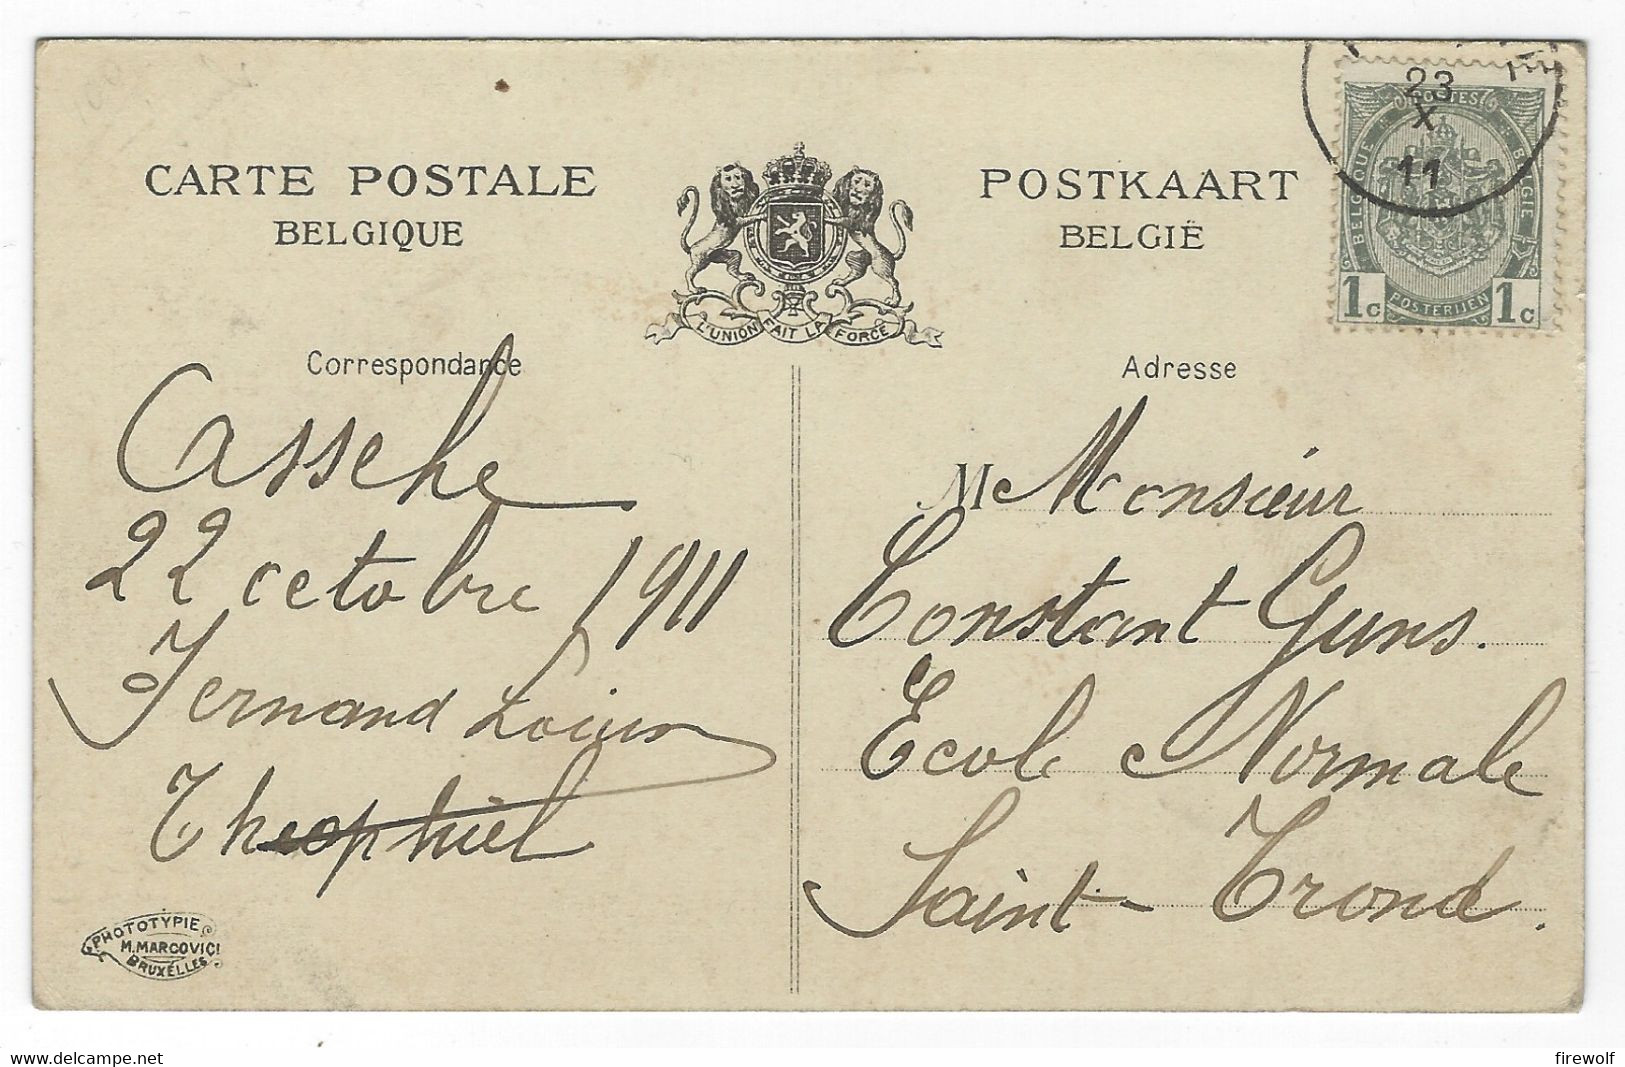 CARTE POSTALE
BELGIQUE
L'UNION FAIT LA FORCE
POSTKAART
BELGIË
23
X
11
POSTES
BELGIQUE
BELGIE
1c POSTERIJEN 1c
Correspondance
Assche
22 octobre 1911
Fernand
Theophiel
PHOTOTYPIE
M. MARCOVICI
BRUXELLES
Adresse
M Monsieur
Constant Guns.
Ecole Normale
Saint-Trond.
www.delcampe.net
firewolf